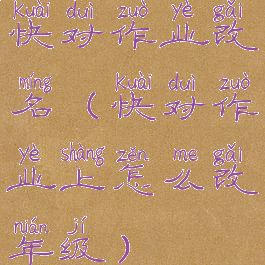 kuài duì zuò yè gǎi
快对作业改
míng kuài duì zuò
名（快对作
yè shàng zěn me gǎi
业上怎么改
nián jí
年级）